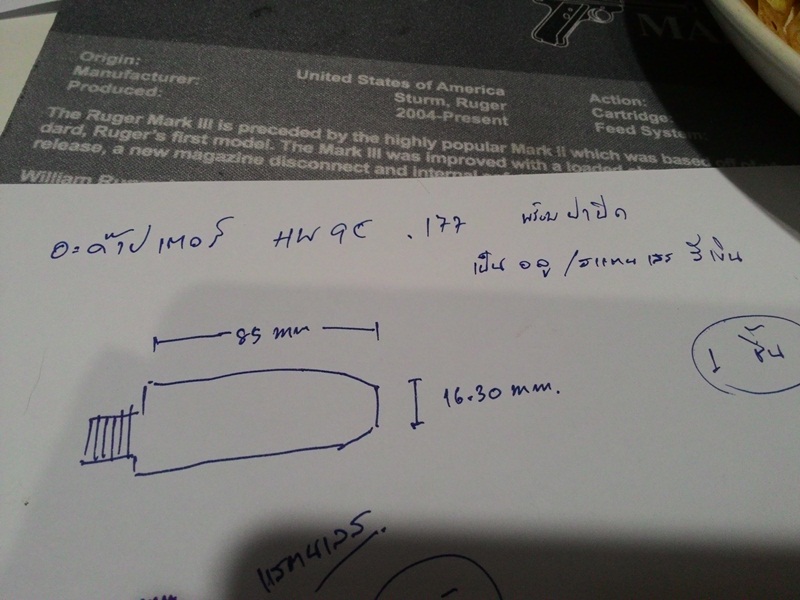 MA
Origin:
United States of America
Manufacturer:
Sturm, Ruger
Produced:
2004-Present
Action:
Cartridge:
Feed System:
The Ruger Mark III is preceded by the highly popular Mark II which was based off of
dard, Ruger's first model. The Mark III was improved with a loaded
release, a new magazine disconnect and internal
William
อะด๊าปเตอร์ HW 9C .177 พร้อมฝาปิด
เป็น อลู /สแตนเลส สีเงิน
85 mm
16.30 mm.
1 ชิ้น